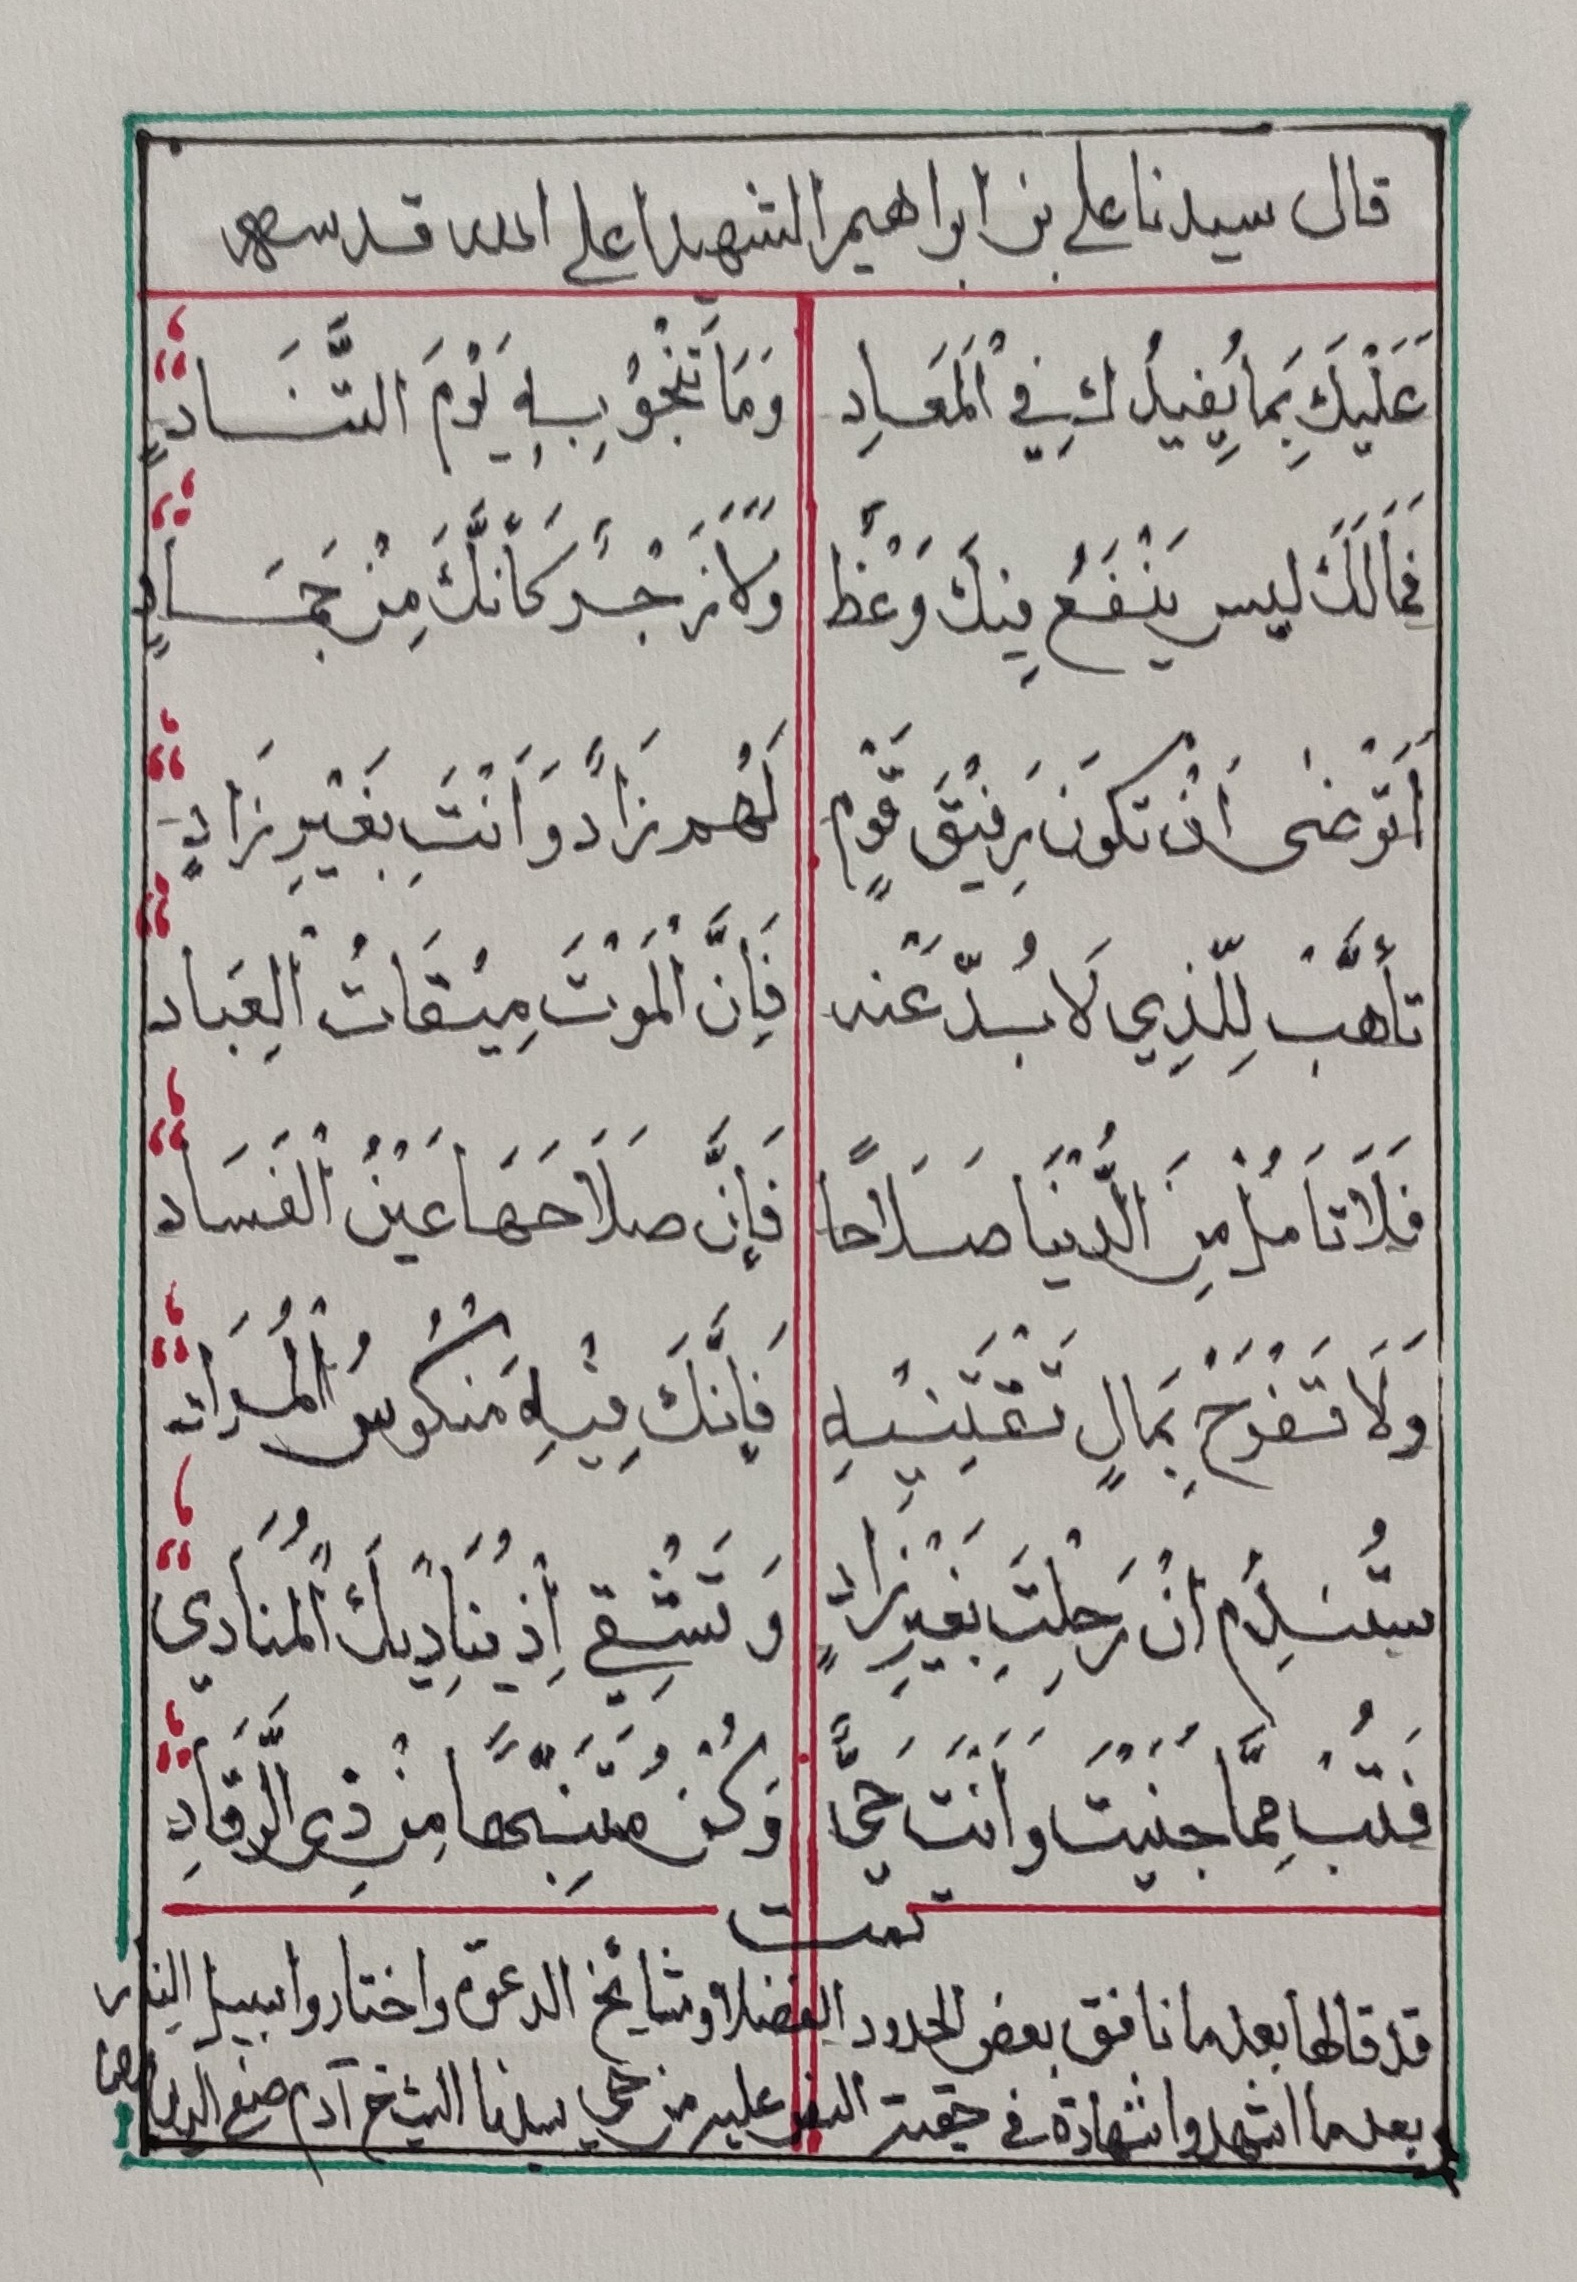 قال سيدنا علي بن ابراهيم الشهيد اعلى الله قدسه
عَلَيْكَ بِمَا يُفِيدُكَ فِي الْمَعَادِ وَمَا تَنْجُو بِهِ يَوْمَ التَّنَادِ
فَمَا لَكَ ليس يَنْفَعُ فِيكَ وَعْظٌ وَلَا زَجْرٌ كَأَنَّكَ مِنْ جَمَادٍ
أَتَرْضٰى اَنْ تكُونَ رَفِيْقَ قَوْمٍ لَهُمْ زَادٌ وَاَنْتَ بِغَيْرِ زَادٍ
تأَهَّبْ لِلَّذِي لَا بُدَّ عَنْه فَاِنَّ الْمَوْتَ مِيْقَاتُ الْعِبَاد
فَلَا تَامُلْ مِنَ الدُّنْيَا صَلَاحًا فَإِنَّ صَلَاحَهَا عَيْنُ الْفَسَاد
وَلَا تَفْرَحْ بِمَالٍ تَقْتَنِيْهِ فَإِنَّكَ فِيْهِ مَنكُوسُ الْمُرَاد
ستَنْدَمُ اِنْ رَحَلْتَ بِغَيْرِ زَادٍ وَتَشْقٰى اِذْ يُنَادِيكَ الْمُنَادِي
فَتُبْ مِمَّا جَنَيْتَ وَأَنْتَ حَيٌّ وَكُنْ مُتَنَبِّهًا مِنْ ذِي الرَّقَادِ
تمت
قد قالها بعد ما نافق بعض الحدود الفضلاء ومشائخ الدعوة واختاروا سبيل
بعد ما اشهدوا شهادة في حقية النص عليه من سيدنا الشيخ آدم صفي الدين